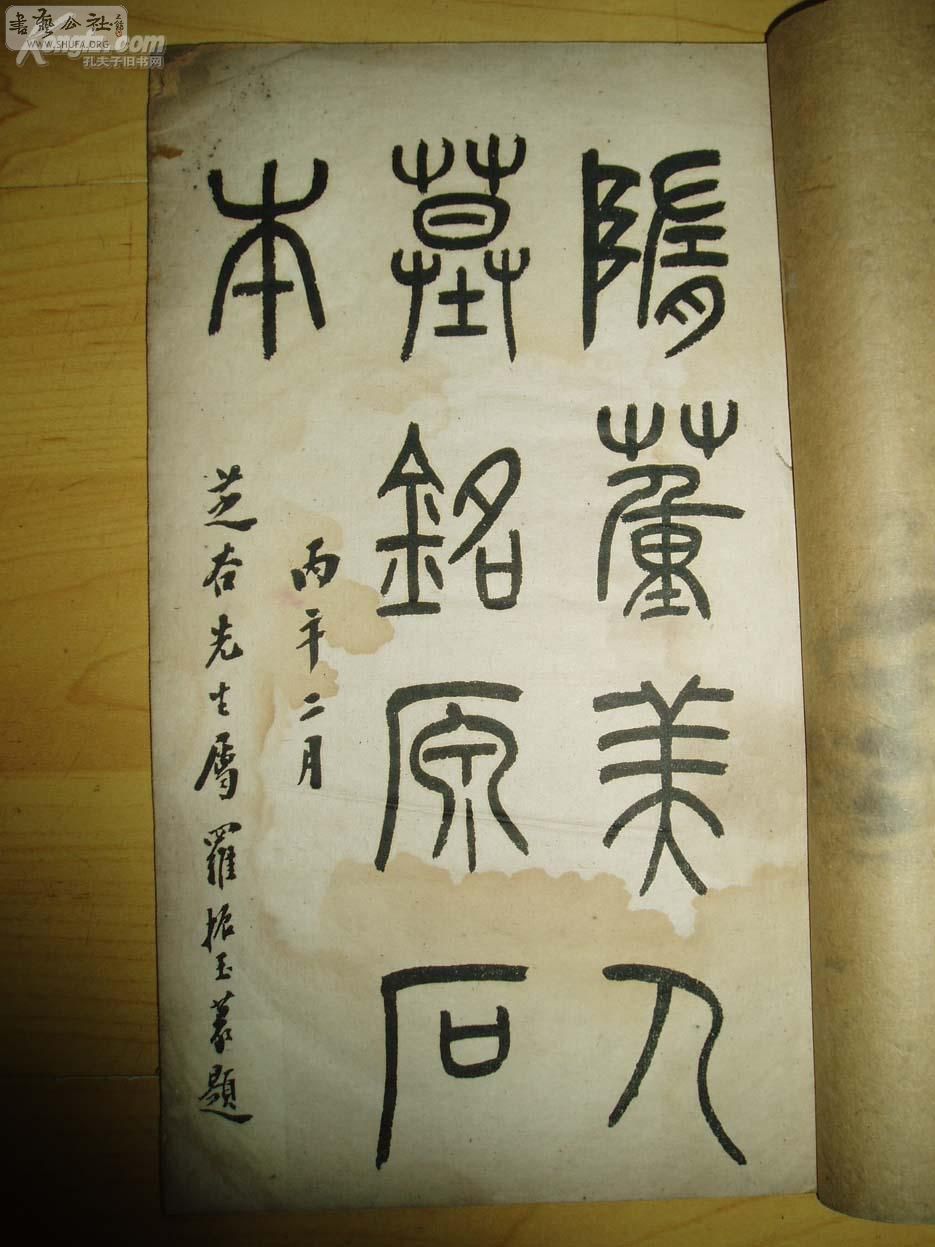 書藝公社
WWW.SHUFA.ORG
Kongfz.com
孔夫子旧书网
隋董美人
墓銘原石
本
丙二月
芝先生屬羅振玉篆題